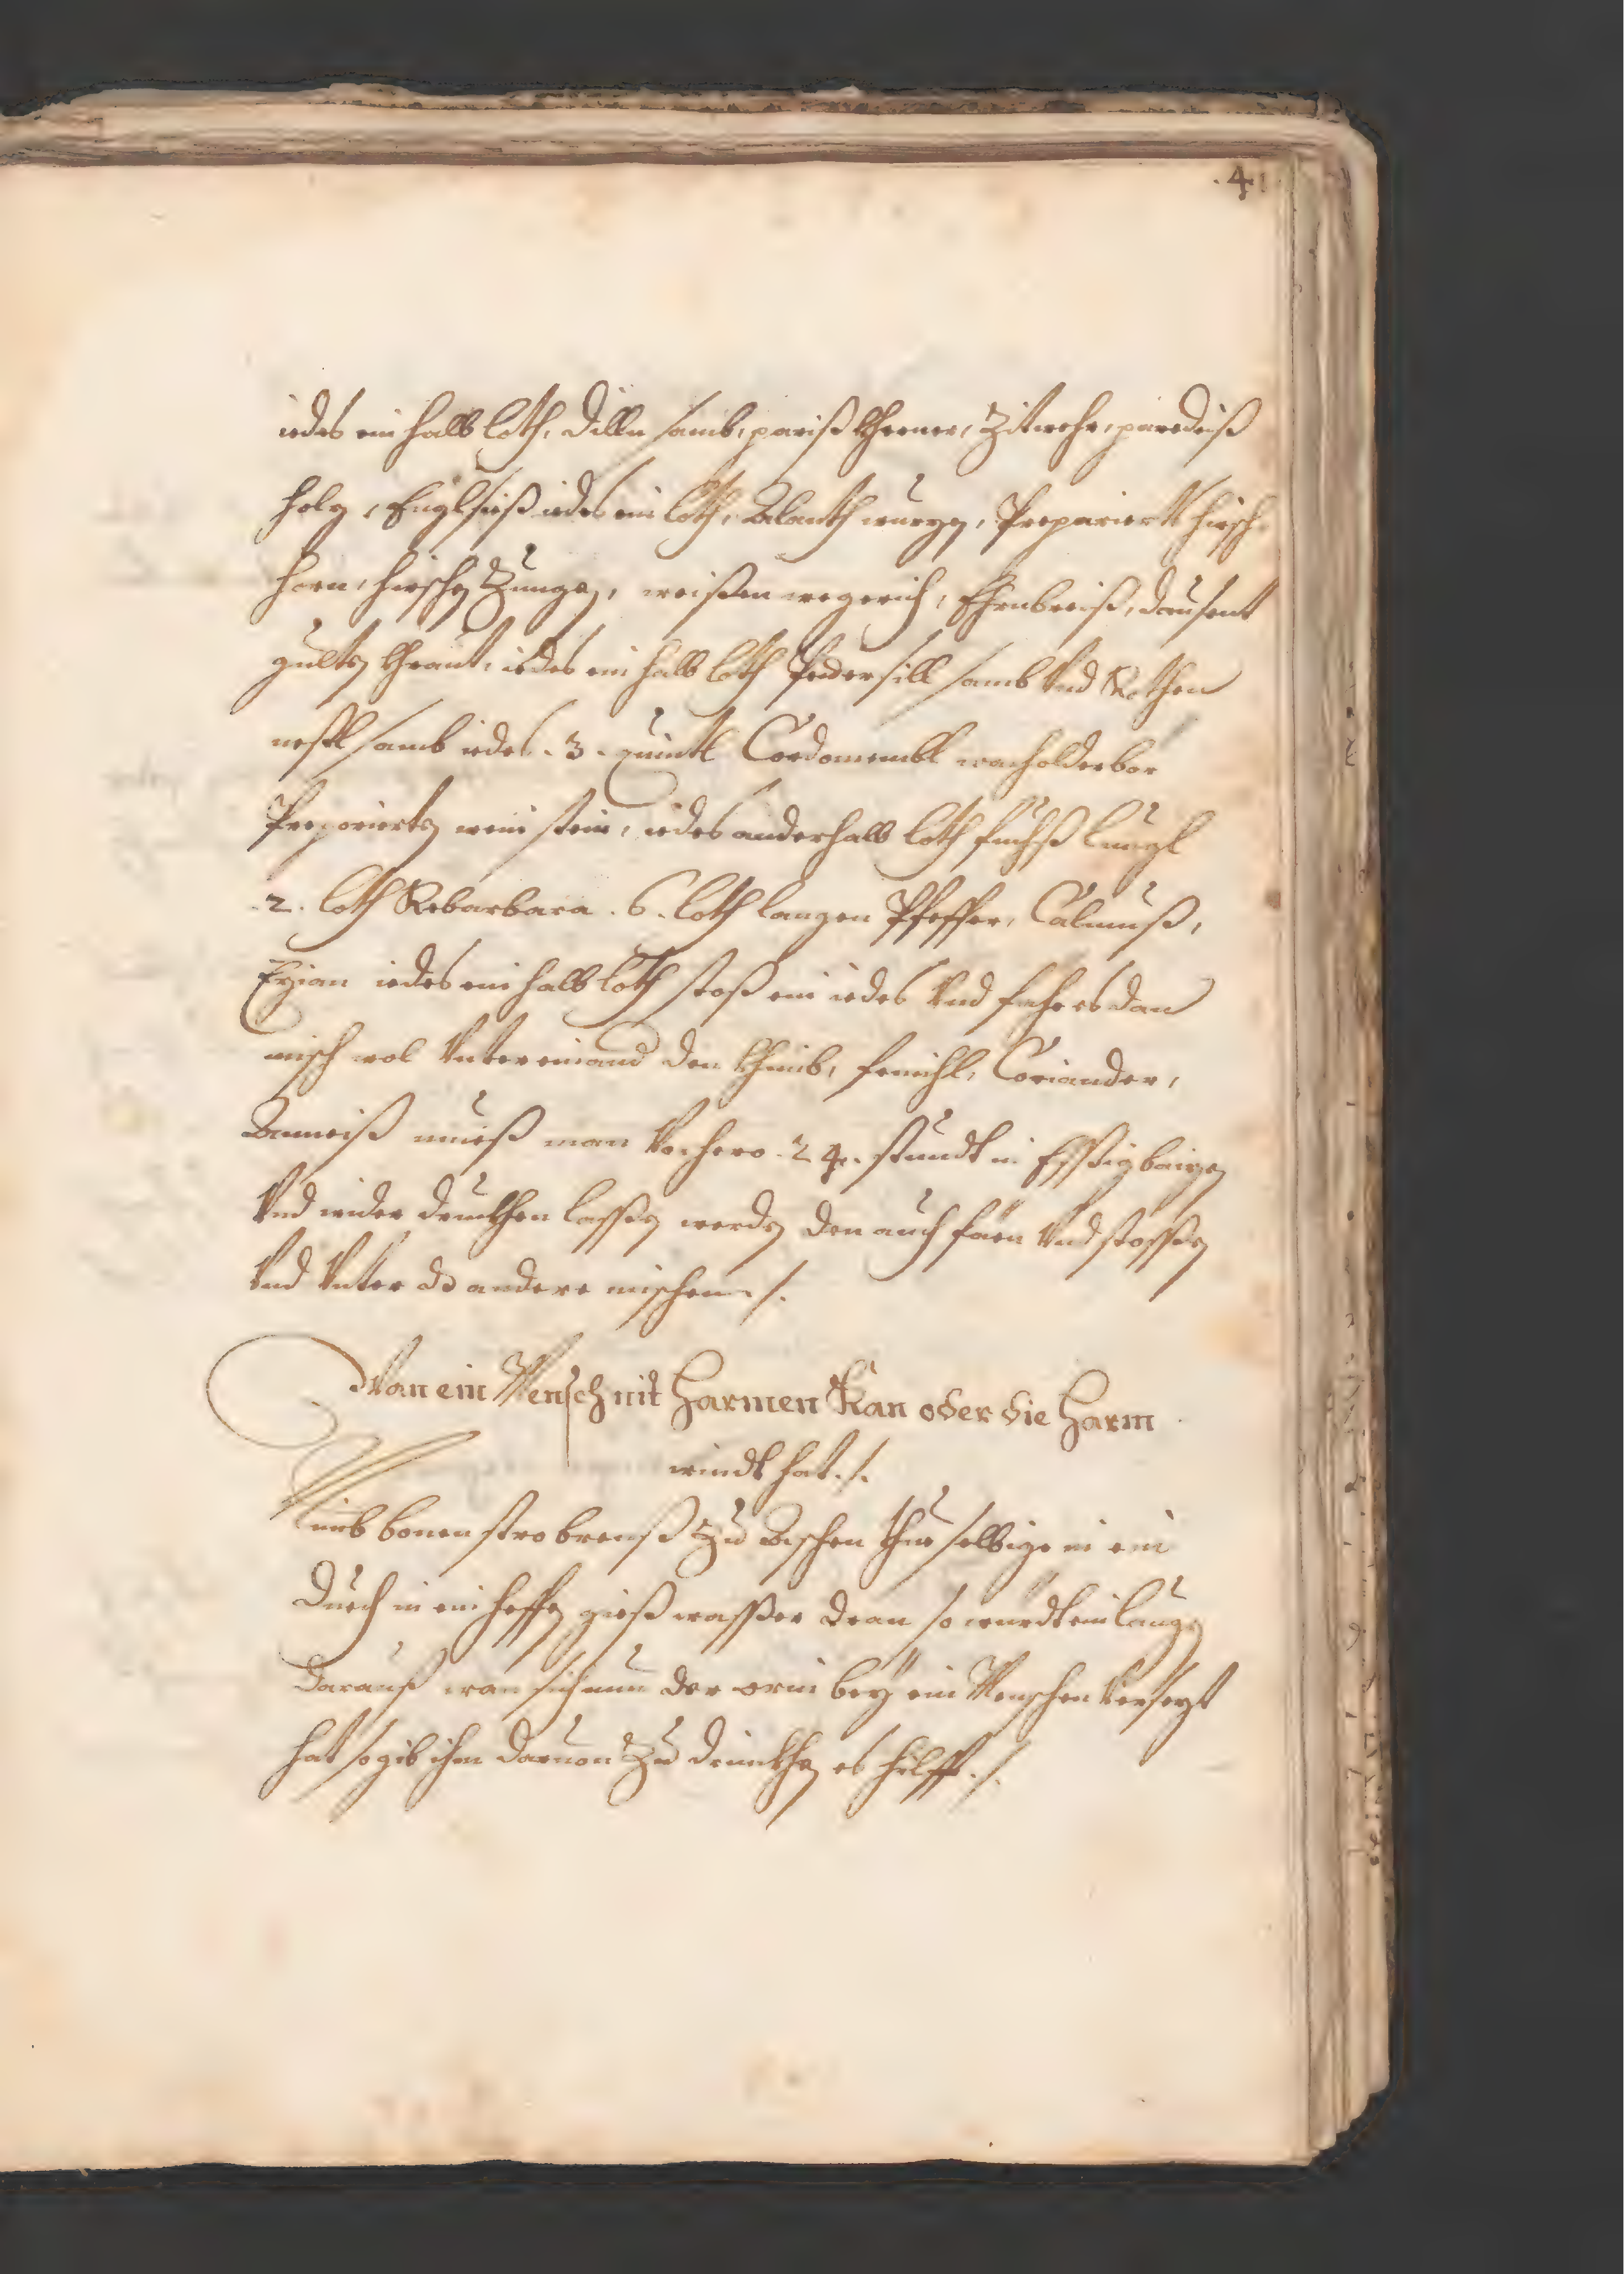 .41
iedes ein halb loth, Dilln samb, pariß Kherner, Zitwehr, paredeiß
holz, Englsieß iedes ein loth, Alanth wurzn, Prepariert hirsch
horn, hirschn Zungen, weißen wegerich, Ehrnbreiß, dausent
gultn Kraut, iedes ein halb loth Pedersill samb Vnd Rothen
nessl samb iedes .3. quintl Cordomembl wacholderber
Prepariertn wein stein, iedes anderhalb loth fuchß lungl
.2. loth Rebarbara .6. loth langen Pfeffer, Calmuß,
Enzian iedes ein halb loth stoß ein iedes Vnd fähe es dan
misch wol Vntereinand den Khimb, fenichl, Coriander,
Anneiß mueß man Vorhero .24. stundt in Essig baizn
Vnd wider druckhen lassen werdn den auch fäen Vnd stossen
Vnd Vnter dß andere mischen ./.
Wan ein Mensch nit Harmen Kan oder die Harm
windt hat ./.
Nimb bonen stro brenß Zu Aschen thue selbige in ein
Duech in ein heffn gieß wasser dran so wurdt ein laugn
darauß wan sich nun der orin bey ein Menschen Versezt
hat so gib ihm daruon Zu drinckhn es hilfft ./.